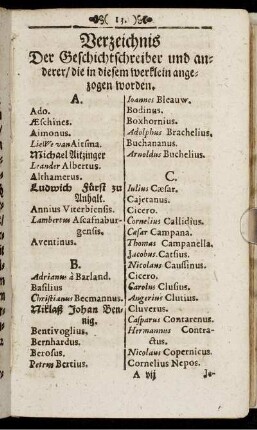 13.
Verzeichnis
Der Geschichtschreiber und an-
derer/ die in diesem wercklein ange-
zogen worden.
A.
Ado.
Æschines.
Aimonus.
Liewe van Aitsma.
Michael Aitzinger
Leander Albertus.
Althamerus.
Ludwich Fürst zu
Anhalt.
Annius Viterbiensis.
Lambertus Ascafnabur-
gensis.
Aventinus.
B.
Adrianus à Barland.
Basilius
Christianus Becmannus.
Niklaß Johan Ben-
nig.
Bentivoglius.
Bernhardus.
Berosus.
Petrus Bertius.
Joannes Bleauw.
Bodinus.
Boxhornius.
Adolphus Brachelius.
Buchananus.
Arnoldus Buchelius.
C.
Julius Cæsar.
Cajetanus.
Cicero.
Cornelius Callidius.
Cæsar Campana.
Thomas Campanella.
Jacobus Catsius.
Nicolaus Caussinus.
Cicero.
Carolus Clusius.
Augerius Clutius.
Cluverus.
Casparus Contarenus.
Hermannus Contra-
ctus.
Nicolaus Copernicus.
Cornelius Nepos.
A vij
Jo-